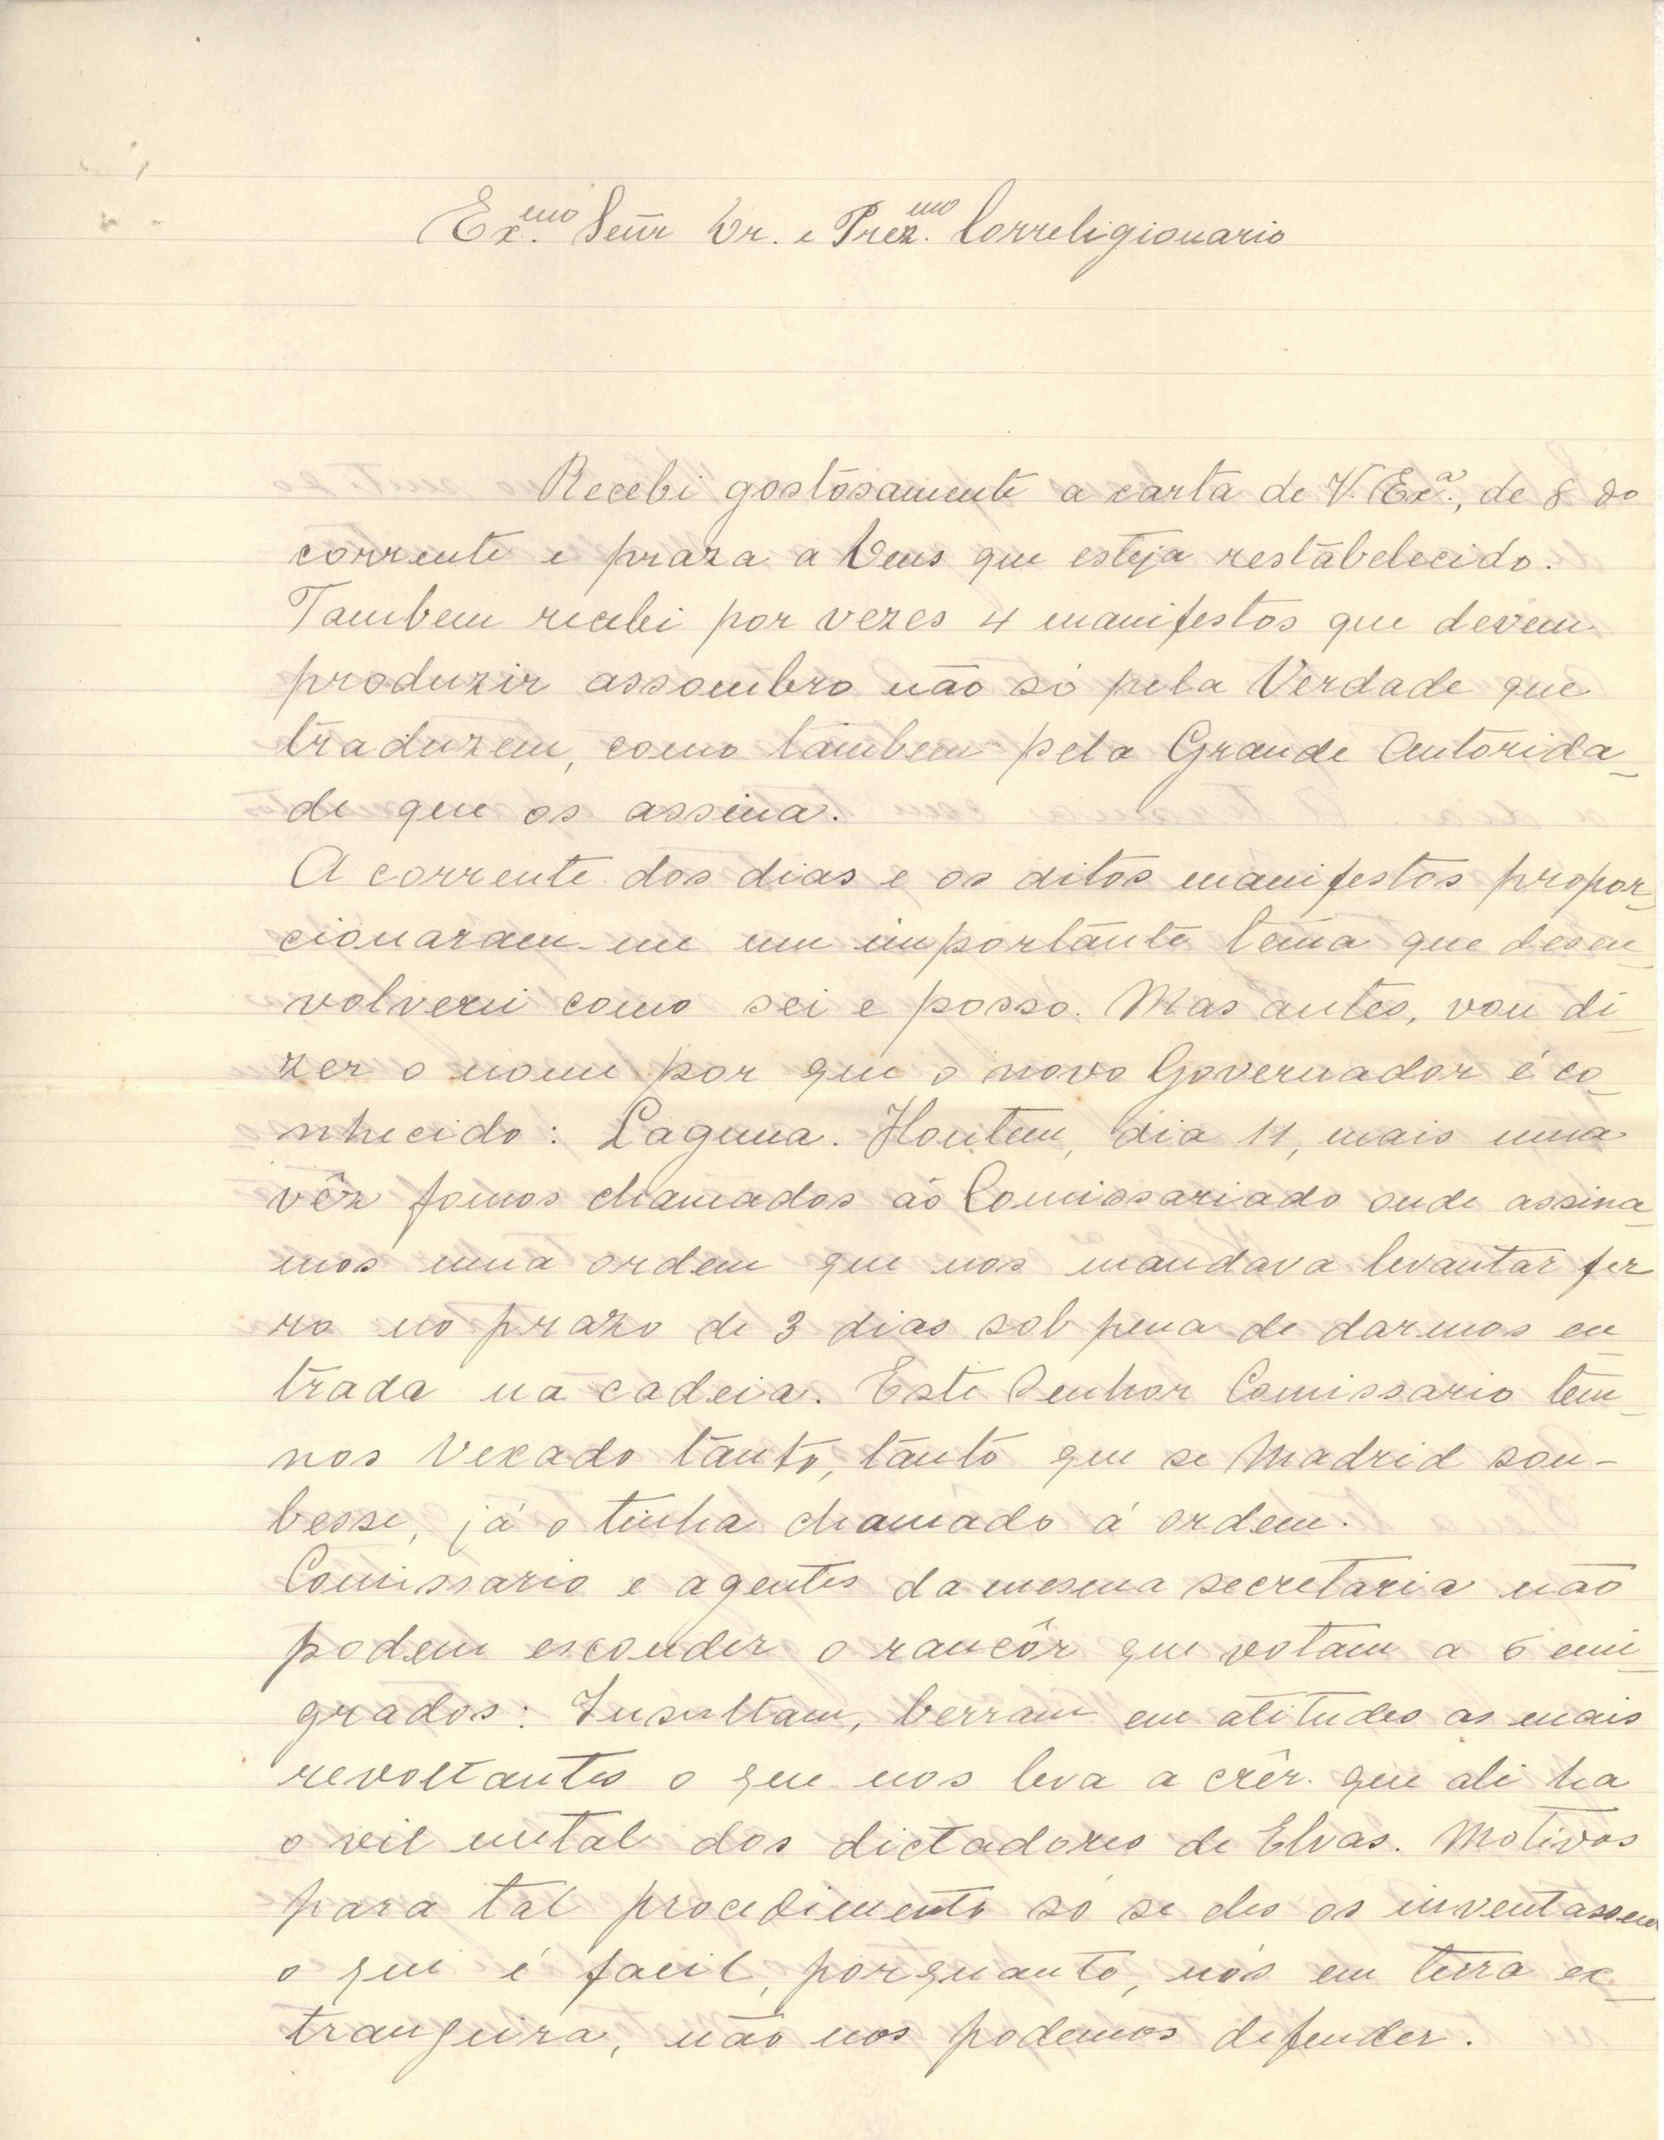 Ex.mo Senr Dr. e Prez.mo Correligionario
Recebi gostosamente a carta de V. Exa., de 8 do
corrente e praza a Deus que esteja restabelecido.
Tambem recebi por vezes 4 manifestos que devem
produzir assombro não só pela Verdade que
traduzem, como tambem pela Grande Autorida-
de que os assina.
A corrente dos dias e os ditos manifestos propor-
cionaram-me um importante têma que desen-
volverei como sei e posso. Mas antes, vou di-
zer o nome por que o novo Governador é co-
nhecido: Laguna. Hontem, dia 11, mais uma
vêz fomos chamados ao Comissariado onde assina-
mos uma ordem que nos mandava levantar fer
ro no prazo de 3 dias sob pena de darmos en-
trada na cadeia. Este Senhor Comissario tem-
nos Vexado tanto, tanto que se Madrid sou-
besse, já o tinha chamado á ordem.
Comissario e agentes da mesma secretaria não
podem esconder o rancôr que votam a 6 emi-
grados: Insultam, berram em atitudes as mais
revoltantes o que nos leva a crêr que ali ha
o vil metal dos dictadores de Elvas. Motivos
para tal procedimento só se eles os inventassem
o que é facil, porquanto, nós em terra ex-
trangeira, não nos podemos defender.